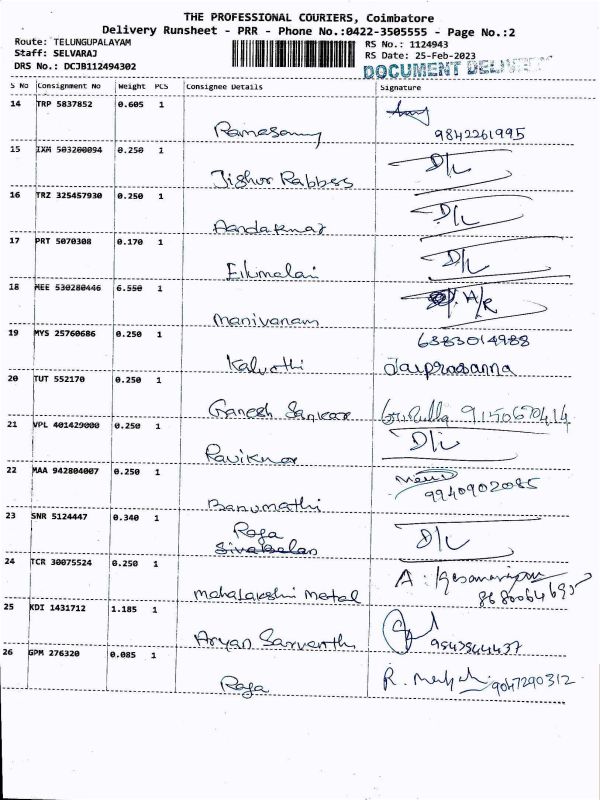 THE PROFESSIONAL COURIERS, Coimbatore
Delivery Runsheet - PRR - Phone No.:0422-3505555 - Page No.:2
Route: TELUNGUPALAYAM RS No.: 1124943
Staff: SELVARAJ RS Date: 25-Feb-2023
DRS No.: DCJB112494302 DOCUMENT DELIVERY
S No Consignment No Weight PCS Consignee Details Signature
14 TRP 5837852 0.605 1
Ramasamy 9842261995
15 IXM 503200094 0.250 1 D/L
Jighur Rabbess
16 TRZ 325457930 0.250 1 D/L
Aandakumar
17 PRT 5070308 0.170 1 D/L
Elimalai
18 MEE 530280446 6.550 1 A/R
Manivanam
19 MYS 25760686 0.250 1 6383014988
Kalvathi Jaiprasanna
20 TUT 552170 0.250 1
Ganesh Sankar 9150670414
21 VPL 401429000 0.250 1 D/L
Ravikumar
22 MAA 942804007 0.250 1
Banumathi 9940902085
23 SNR 5124447 0.340 1
Raja D/L
Sivabalan
24 TCR 30075524 0.250 1
Mahalakshmi Metal 8680064695
25 KDI 1431712 1.185 1
Aryan Sarvanthi 9543544437
26 GPM 276320 0.085 1
Raja 9047290312